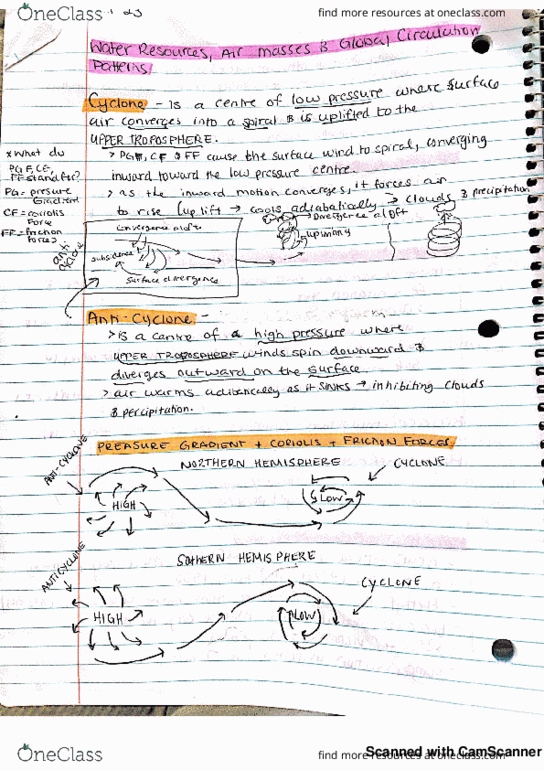 OneClass
find more resources at oneclass.com
23
Water Resources, Air masses & Global Circulation
Patterns
Cyclone - Is a centre of low pressure where surface
air converges into a spiral & is uplifted to the
UPPER TROPOSPHERE.
> PGF, CF & FF cause the surface wind to spiral, converging
inward toward the low pressure centre.
> as the inward motion converges, it forces air
to rise (uplift → cools adiabatically → clouds & precipitation
* What do
PGF, CF,
FF stand for?
PG = presure
Gradient
CF = coriolis
Force
FF = friction
forces
anti cyclone
convergence aloft
subsidence
Surface divergence
Divergence aloft
Anti-Cyclone -
> is a centre of a high pressure where
UPPER TROPOSPHERE winds spin downward &
diverges outward on the surface
> air warms adibatically as it SINKS → inhibiting clouds
& percipitation.
PREASURE GRADIENT + CORIOLIS + FRICTION FORCES
NORTHERN HEMISPHERE
ANTI-CYCLONE
CYCLONE
HIGH
LOW
SOTHERN HEMISPHERE
ANTICYCLONE
CYCLONE
HIGH
LOW
OneClass
find more resources at oneclass.com
Scanned with CamScanner